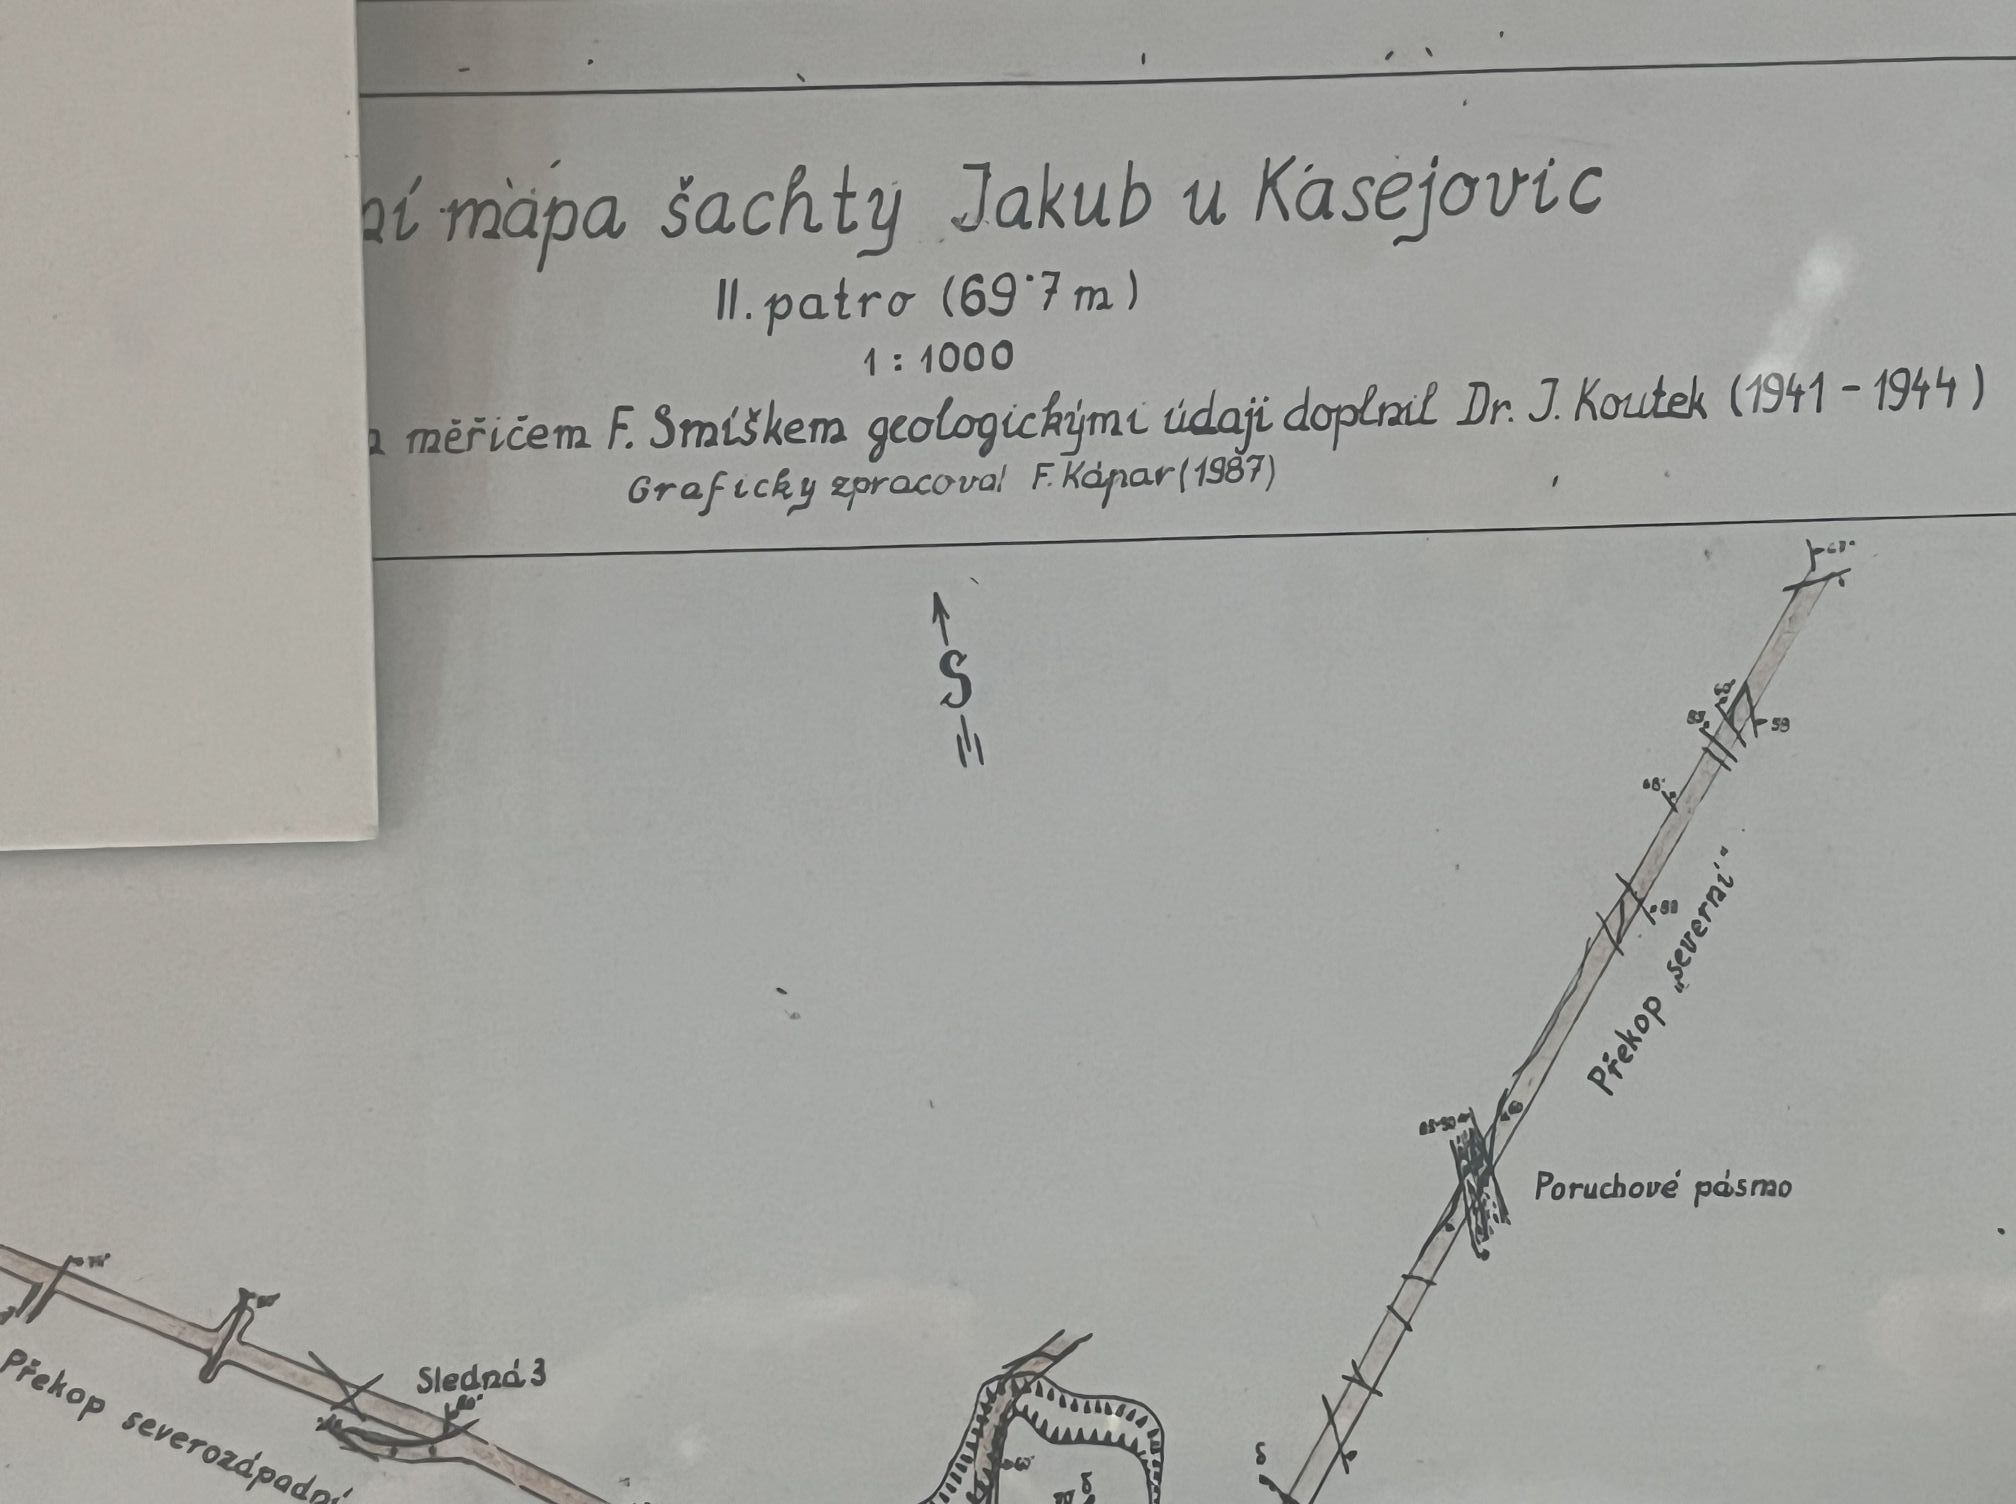 mapa šachty Jakub u Kasejovic
II. patro (69·7 m)
1 : 1000
měřičem F. Smíškem geologickými údaji doplnil Dr. J. Koutek (1941 - 1944)
Graficky zpracoval F. Kápar (1987)
S
59
Překop „severní“
Poruchové pásmo
Sledná 3
Překop severozápadní
δ
δ